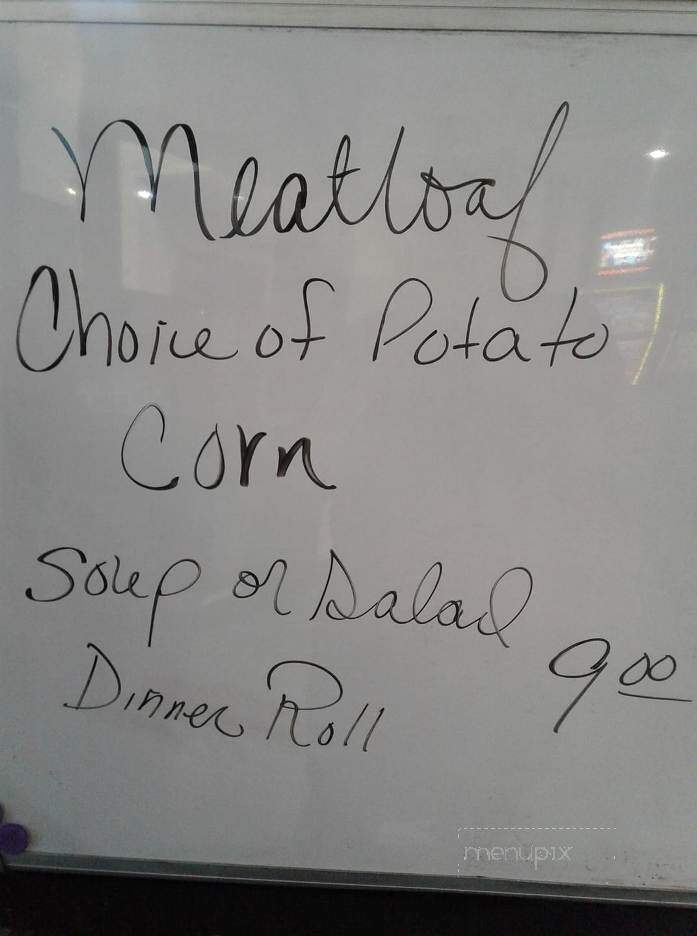 Meatloaf
Choice of Potato
Corn
Soup or Salad
9.00
Dinner Roll
menupix